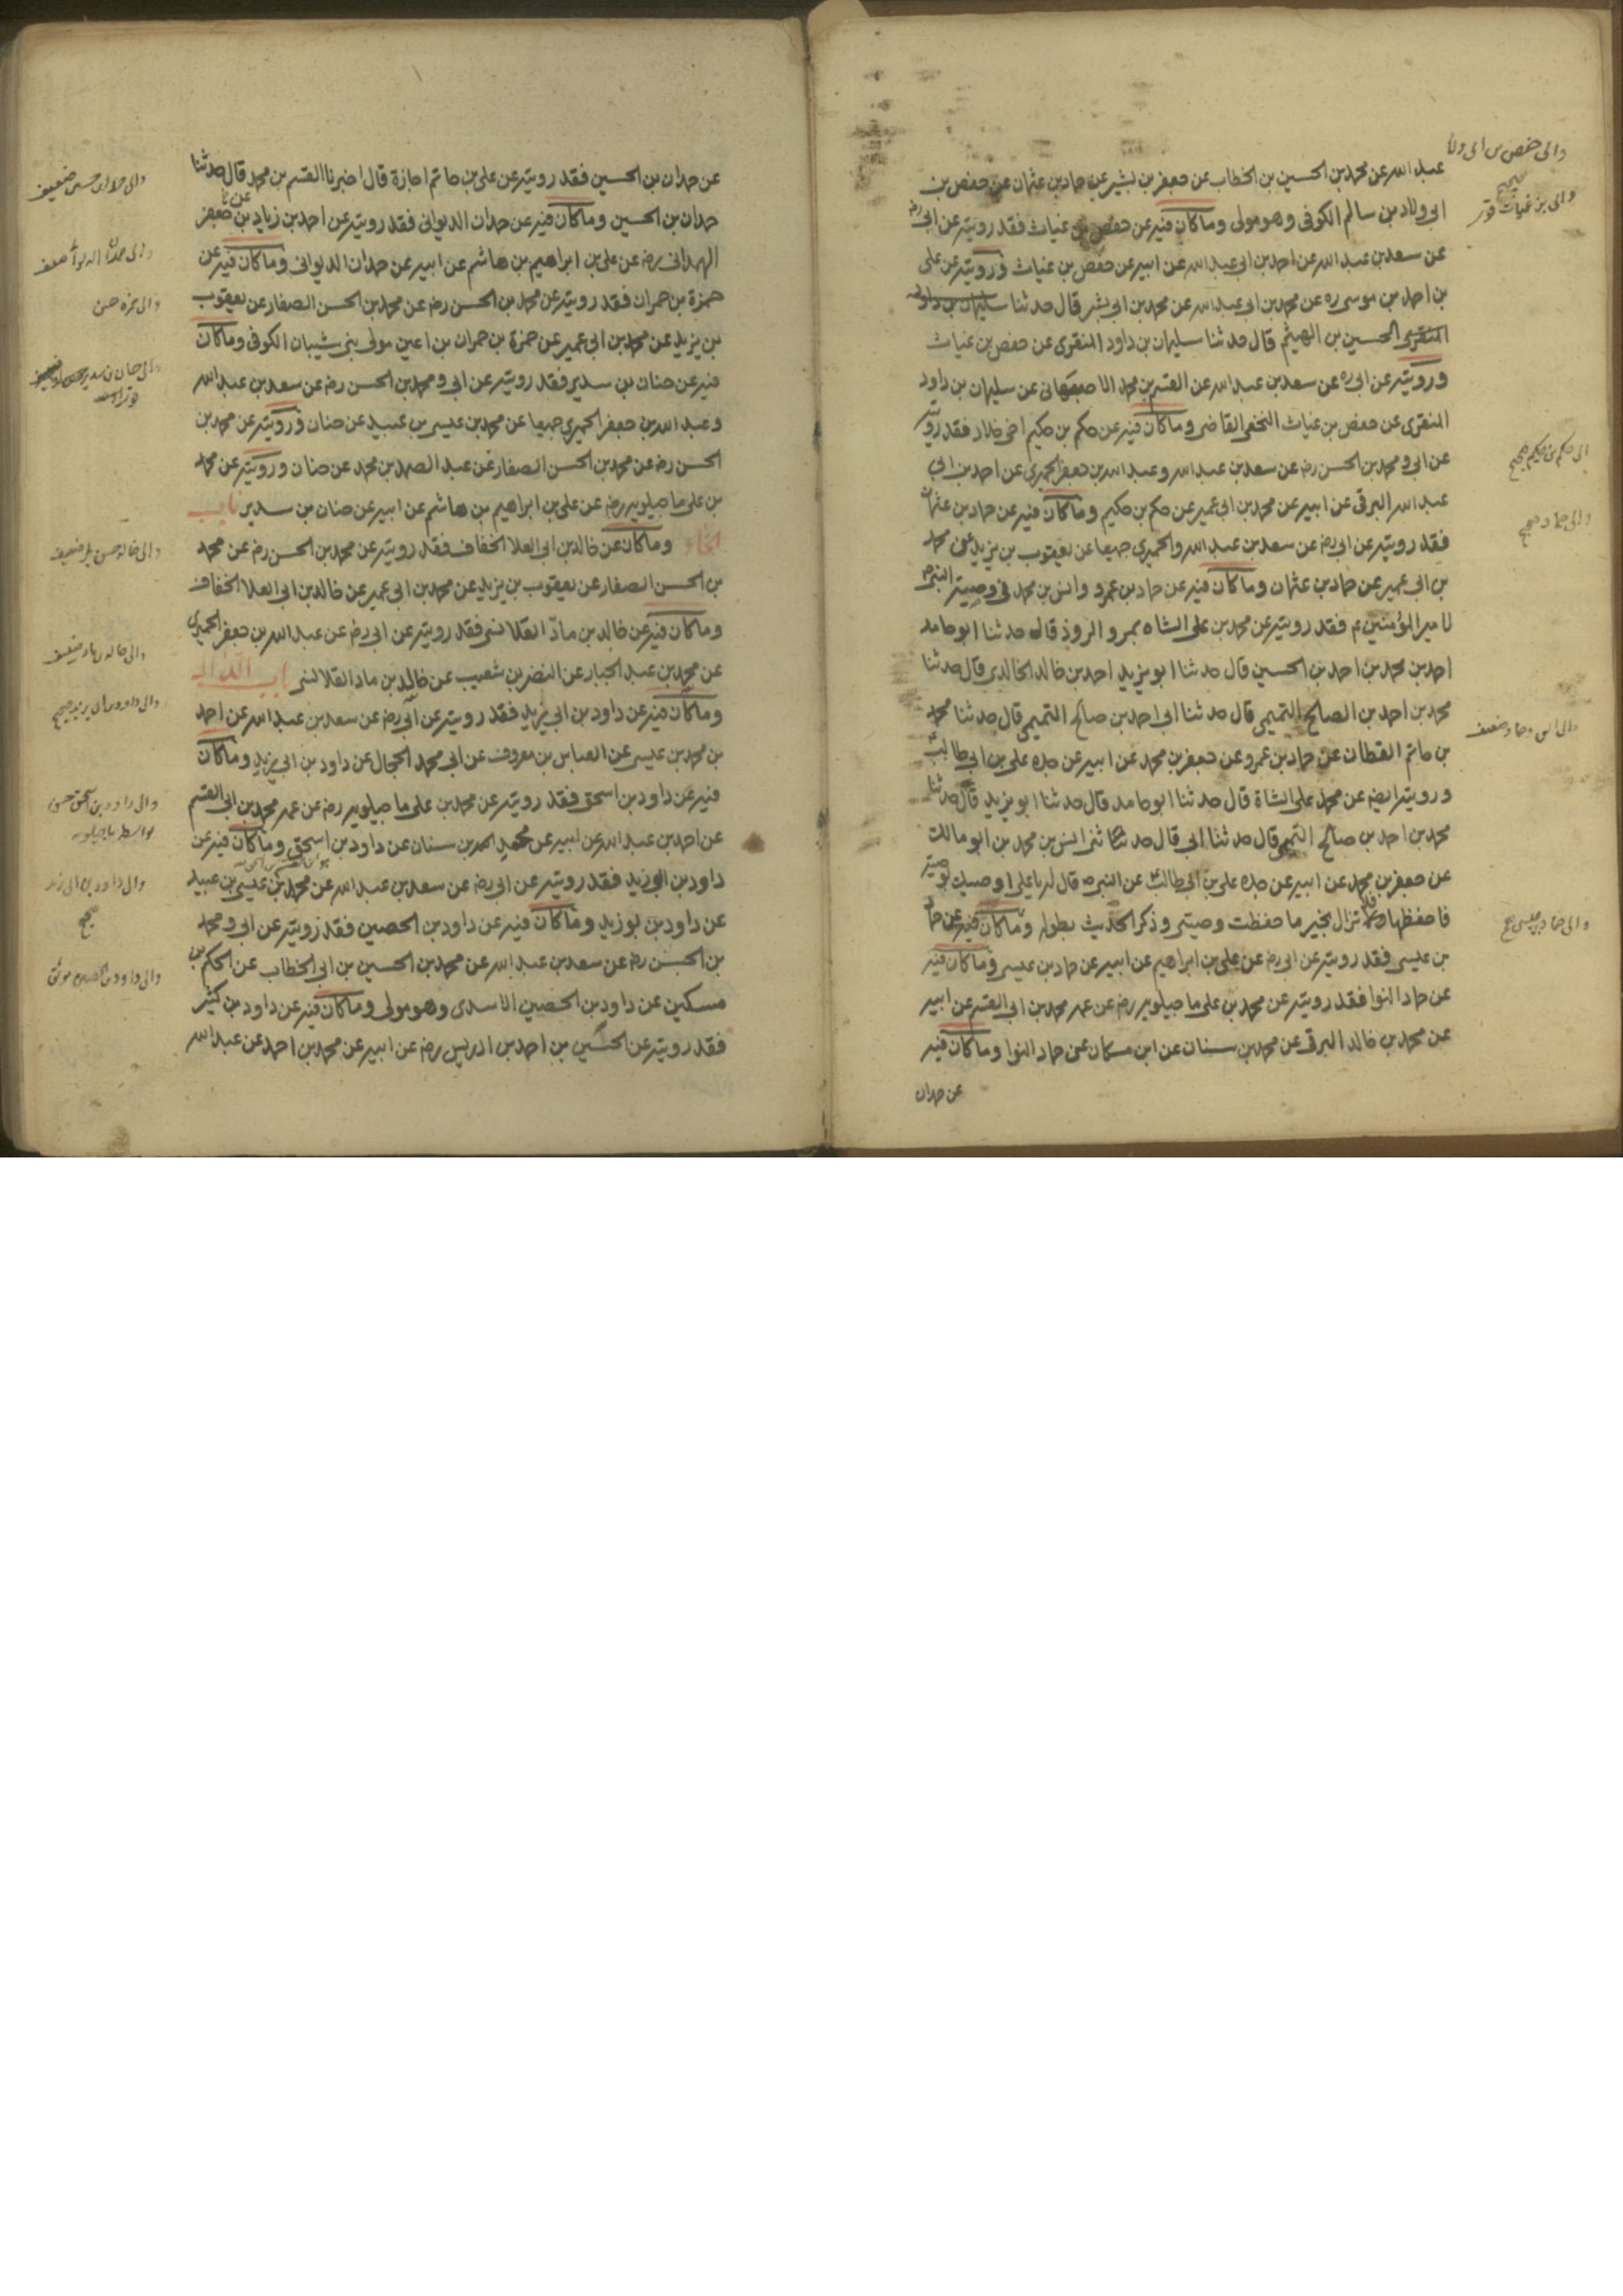 عبد الله عن محمد بن الحسين بن الخطاب عن جعفر بن بشير عن حماد بن عثمان عن حفص بن
ابى ولاد بن سالم الكوفى وهو مولى وما كان فيه عن حفص بن غياث فقد رويته عن ابى ره
عن سعد بن عبد الله عن احمد بن ابى عبد الله عن ابيه عن حفص بن غياث ورويته عن على
بن احمد بن موسى ره عن محمد بن ابى عبد الله عن محمد بن ابى بشر قال حدثنا سليمان بن داود
المنقرى الحسين بن الهيثم قال حدثنا سليمان بن داود المنقرى عن حفص بن غياث
ورويته عن ابى ره عن سعد بن عبد الله عن القسم بن محمد الاصفهانى عن سليمان بن داود
المنقرى عن حفص بن غياث النخعى القاضى وما كان فيه عن حكم بن حكيم اخى خلاد فقد رويته
عن ابى و محمد بن الحسن رضه عن سعد بن عبد الله وعبد الله بن جعفر الحميرى عن احمد بن ابى
عبد الله البرقى عن ابيه عن محمد بن ابى عمير عن حكم بن حكيم وما كان فيه عن حماد بن عثمان
فقد رويته عن ابى رضه عن سعد بن عبد الله والحميرى جميعا عن يعقوب بن يزيد عن محمد
بن ابى عمير عن حماد بن عثمان وما كان فيه عن حماد بن عمرو وانس بن محمد فى وصية النبى ص
لامير المؤمنين ع فقد رويته عن محمد بن على الشاه بمرو الروذ قال حدثنا ابو حامد
احمد بن محمد بن احمد بن الحسين قال حدثنا ابو يزيد احمد بن خالد الخالدى قال حدثنا
محمد بن احمد بن الصالح التميمى قال حدثنا ابى احمد بن صالح التميمى قال حدثنا محمد
بن حاتم القطان عن حماد بن عمرو عن جعفر بن محمد عن ابيه عن جده على بن ابى طالب ع
ورويته ايضه عن محمد على الشاة قال حدثنا ابو حامد قال حدثنا ابو يزيد قال حدثنا
محمد بن احمد بن صالح التميمى قال حدثنا ابى قال حدثنا انس بن محمد بن ابو مالك
عن جعفر بن محمد عن ابيه عن جده على بن ابى طالب ع عن النبى ص قال له يا على اوصيك بوصية
فاحفظها فلا تزال بخير ما حفظت وصيتى وذكر الحديث بطوله وما كان فيه عن حماد
بن عيسى فقد رويته عن ابى رضه عن على بن ابراهيم عن ابيه عن حماد بن عيسى وما كان فيه
عن حماد النوا فقد رويته عن محمد بن على ماجيلويه رضه عن عمه محمد بن ابى القسم عن ابيه
عن محمد بن خالد البرقى عن محمد بن سنان عن ابن مسكان عن حماد النوا وما كان فيه
عن حمدان
والى حفص بن ابى ولاد
صحيح
والى بن غياث
الى حكم بن حكيم صحيح
والى حماد صحيح
والى انس وحماد ضعيف
والى حماد بن عيسى
عن حمدان بن الحسين فقد رويته عن على بن حاتم اجازة قال اخبرنا القسم بن محمد قال حدثنا
حمدان بن الحسين وما كان فيه عن حمدان الديوانى فقد رويته عن احمد بن زياد بن جعفر
الهمدانى رضه عن على بن ابراهيم بن هاشم عن ابيه عن حمدان الديوانى وما كان فيه عن
حمزة بن حمران فقد رويته عن محمد بن الحسن رضه عن محمد بن الحسن الصفار عن يعقوب
بن يزيد عن محمد بن ابى عمير عن حمزة بن حمران بن اعين مولى بنى شيبان الكوفى وما كان
فيه عن حنان بن سدير فقد رويته عن ابى و محمد بن الحسن رضه عن سعد بن عبد الله
وعبد الله بن جعفر الحميرى جميعا عن محمد بن عيسى بن عبيد عن حنان ورويته عن محمد بن
الحسن رضه عن محمد بن الحسن الصفار عن عبد الصمد بن محمد عن حنان ورويته عن محمد
بن على ماجيلويه رضه عن على بن ابراهيم بن هاشم عن ابيه عن حنان بن سدير باب
الخاء وما كان عن خالد بن ابى العلا الخفاف فقد رويته عن محمد بن الحسن رضه عن محمد
بن الحسن الصفار عن يعقوب بن يزيد عن محمد بن ابى عمير عن خالد بن ابى العلا الخفاف
وما كان فيه عن خالد بن ماد القلانسى فقد رويته عن ابى رضه عن عبد الله بن جعفر الحميرى
عن محمد بن عبد الجبار عن النضر بن شعيب عن خالد بن ماد القلانسى باب الدال
وما كان فيه عن داود بن ابى يزيد فقد رويته عن ابى رضه عن سعد بن عبد الله عن احمد
بن محمد بن عيسى عن العباس بن معروف عن ابى محمد الحجال عن داود بن ابى يزيد وما كان
فيه عن داود بن اسحق فقد رويته عن محمد بن على ماجيلويه رضه عن عمه محمد بن ابى القسم
عن احمد بن عبد الله عن ابيه عن محمد بن سنان عن داود بن اسحق وما كان فيه عن
داود بن ابى زيد فقد رويته عن ابى رضه عن سعد بن عبد الله عن محمد بن عيسى بن عبيد
عن داود بن بوزيد وما كان فيه عن داود بن الحصين فقد رويته عن ابى و محمد
بن الحسن رضه عن سعد بن عبد الله عن محمد بن الحسين بن ابى الخطاب عن الحكم بن
مسكين عن داود بن الحصين الاسدى وهو مولى وما كان فيه عن داود بن كثير
فقد رويته عن الحسين بن احمد بن ادريس رضه عن ابيه عن محمد بن احمد عن عبد الله
والى حمدان حسين ضعيف
والى حمزه حسن
والى داود بن ابى يزيد صحيح
والى داود بن اسحق حسن
والى داود بن ابى زيد
صحيح
والى داود بن الحصين موثق